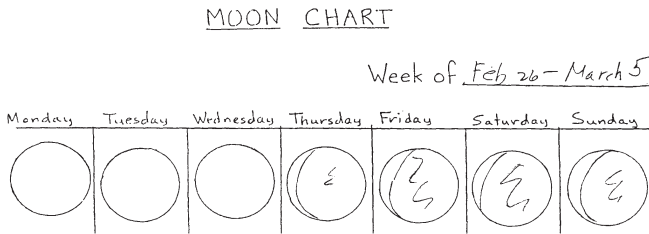 MOON CHART
Week of Feb 26 - March 5
Monday Tuesday Wednesday Thursday Friday Saturday Sunday